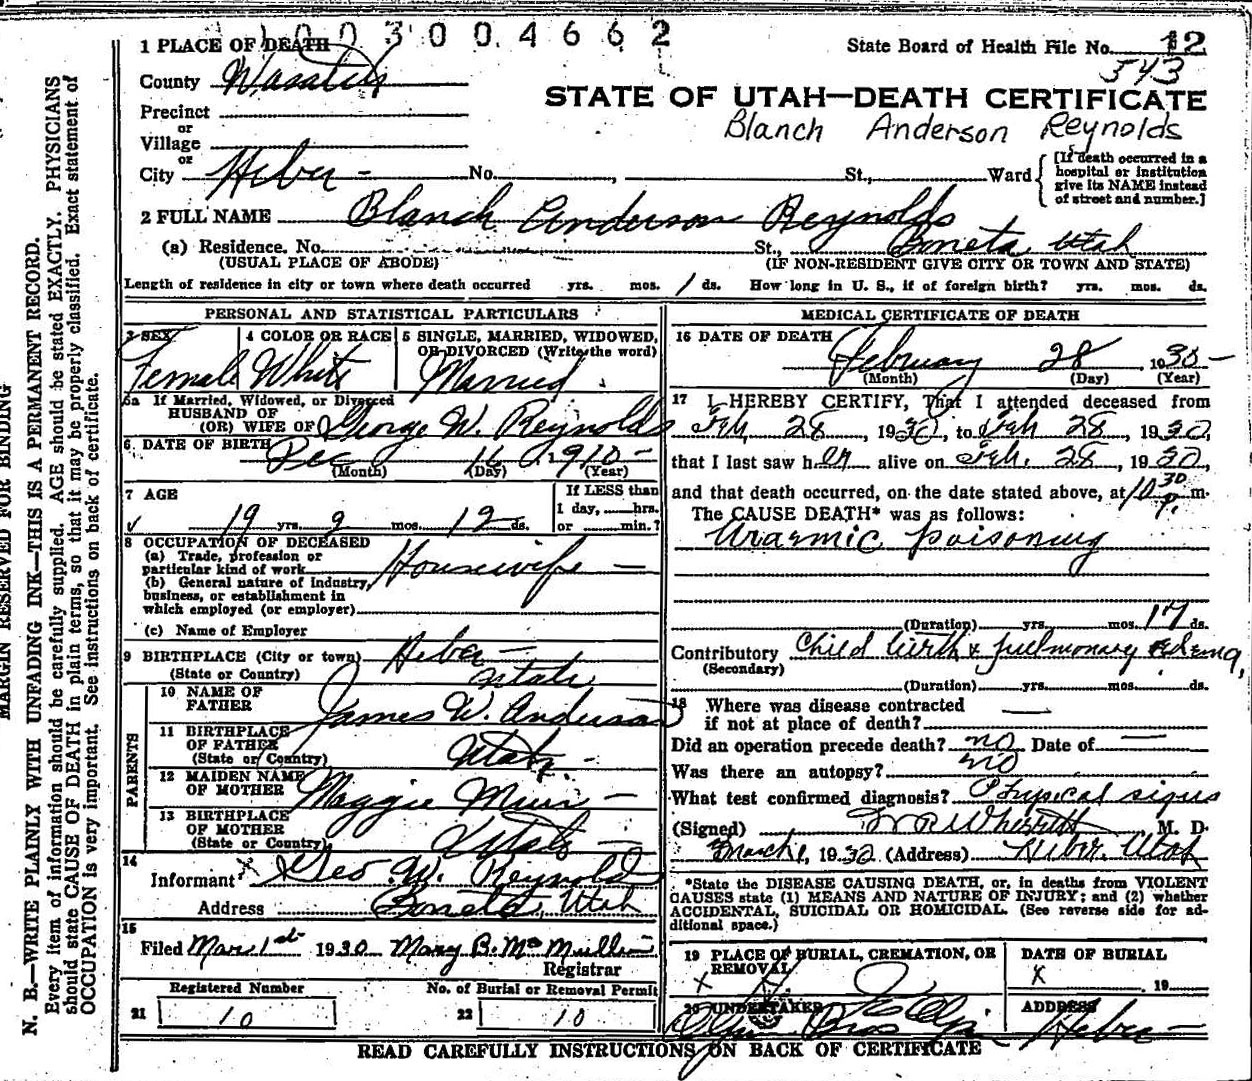 1003004662
1 PLACE OF DEATH
State Board of Health File No. 12
543
County Wasatch
STATE OF UTAH—DEATH CERTIFICATE
Precinct
or
Blanch Anderson Reynolds
Village
or
City Heber - No. , St., Ward
[If death occurred in a
hospital or institution
give its NAME instead
of street and number.]
2 FULL NAME Blanch Anderson Reynolds
(a) Residence. No. St., Boneta, Utah
(USUAL PLACE OF ABODE) (IF NON-RESIDENT GIVE CITY OR TOWN AND STATE)
Length of residence in city or town where death occurred yrs. mos. 1 ds. How long in U. S., if of foreign birth? yrs. mos. ds.
PERSONAL AND STATISTICAL PARTICULARS
3 SEX
Female
4 COLOR OR RACE
White
5 SINGLE, MARRIED, WIDOWED,
OR DIVORCED (Write the word)
Married
5a If Married, Widowed, or Divorced
HUSBAND OF
(OR) WIFE OF George W. Reynolds
6 DATE OF BIRTH Dec 16 1910 -
(Month) (Day) (Year)
7 AGE
19 yrs. 2 mos. 12 ds.
If LESS than
1 day, hrs.
or min.?
8 OCCUPATION OF DECEASED
(a) Trade, profession or
particular kind of work Housewife -
(b) General nature of Industry,
business, or establishment in
which employed (or employer)
(c) Name of Employer
9 BIRTHPLACE (City or town) Heber -
(State or Country) Utah
PARENTS
10 NAME OF
FATHER James W. Anderson
11 BIRTHPLACE
OF FATHER
(State or Country) Utah -
12 MAIDEN NAME
OF MOTHER Maggie Muir -
13 BIRTHPLACE
OF MOTHER
(State or Country) Utah -
14
Informant X Geo. W. Reynold
Address Boneta, Utah
15
Filed Mar 1st 1930 Mary B. McMullin
Registrar
Registered Number
21 10
No. of Burial or Removal Permit
22 10
MEDICAL CERTIFICATE OF DEATH
16 DATE OF DEATH
February 28, 1930 -
(Month) (Day) (Year)
17 I HEREBY CERTIFY, That I attended deceased from
Feb 28, 1930, to Feb 28, 1930,
that I last saw her alive on Feb. 28, 1930,
and that death occurred, on the date stated above, at 10 30 P. m.
The CAUSE DEATH* was as follows:
Uraemic poisoning
(Duration) yrs. mos. 17 ds.
Contributory Child birth & pulmonary edema,
(Secondary)
(Duration) yrs. mos. ds.
18 Where was disease contracted
if not at place of death?
Did an operation precede death? no Date of —
Was there an autopsy? no
What test confirmed diagnosis? Physical signs
(Signed) W R Wherritt M. D.
March 1, 1930 (Address) Heber, Utah
*State the DISEASE CAUSING DEATH, or, in deaths from VIOLENT
CAUSES state (1) MEANS AND NATURE OF INJURY; and (2) whether
ACCIDENTAL, SUICIDAL OR HOMICIDAL. (See reverse side for ad-
ditional space.)
19 PLACE OF BURIAL, CREMATION, OR
REMOVAL
X
DATE OF BURIAL
X , 19
20 UNDERTAKER
Olpin Bros
ADDRESS
Heber -
READ CAREFULLY INSTRUCTIONS ON BACK OF CERTIFICATE
MARGIN RESERVED FOR BINDING
N. B.—WRITE PLAINLY WITH UNFADING INK—THIS IS A PERMANENT RECORD.
Every item of information should be carefully supplied. AGE should be stated EXACTLY. PHYSICIANS
should state CAUSE OF DEATH in plain terms, so that it may be properly classified. Exact statement of
OCCUPATION is very important. See instructions on back of certificate.